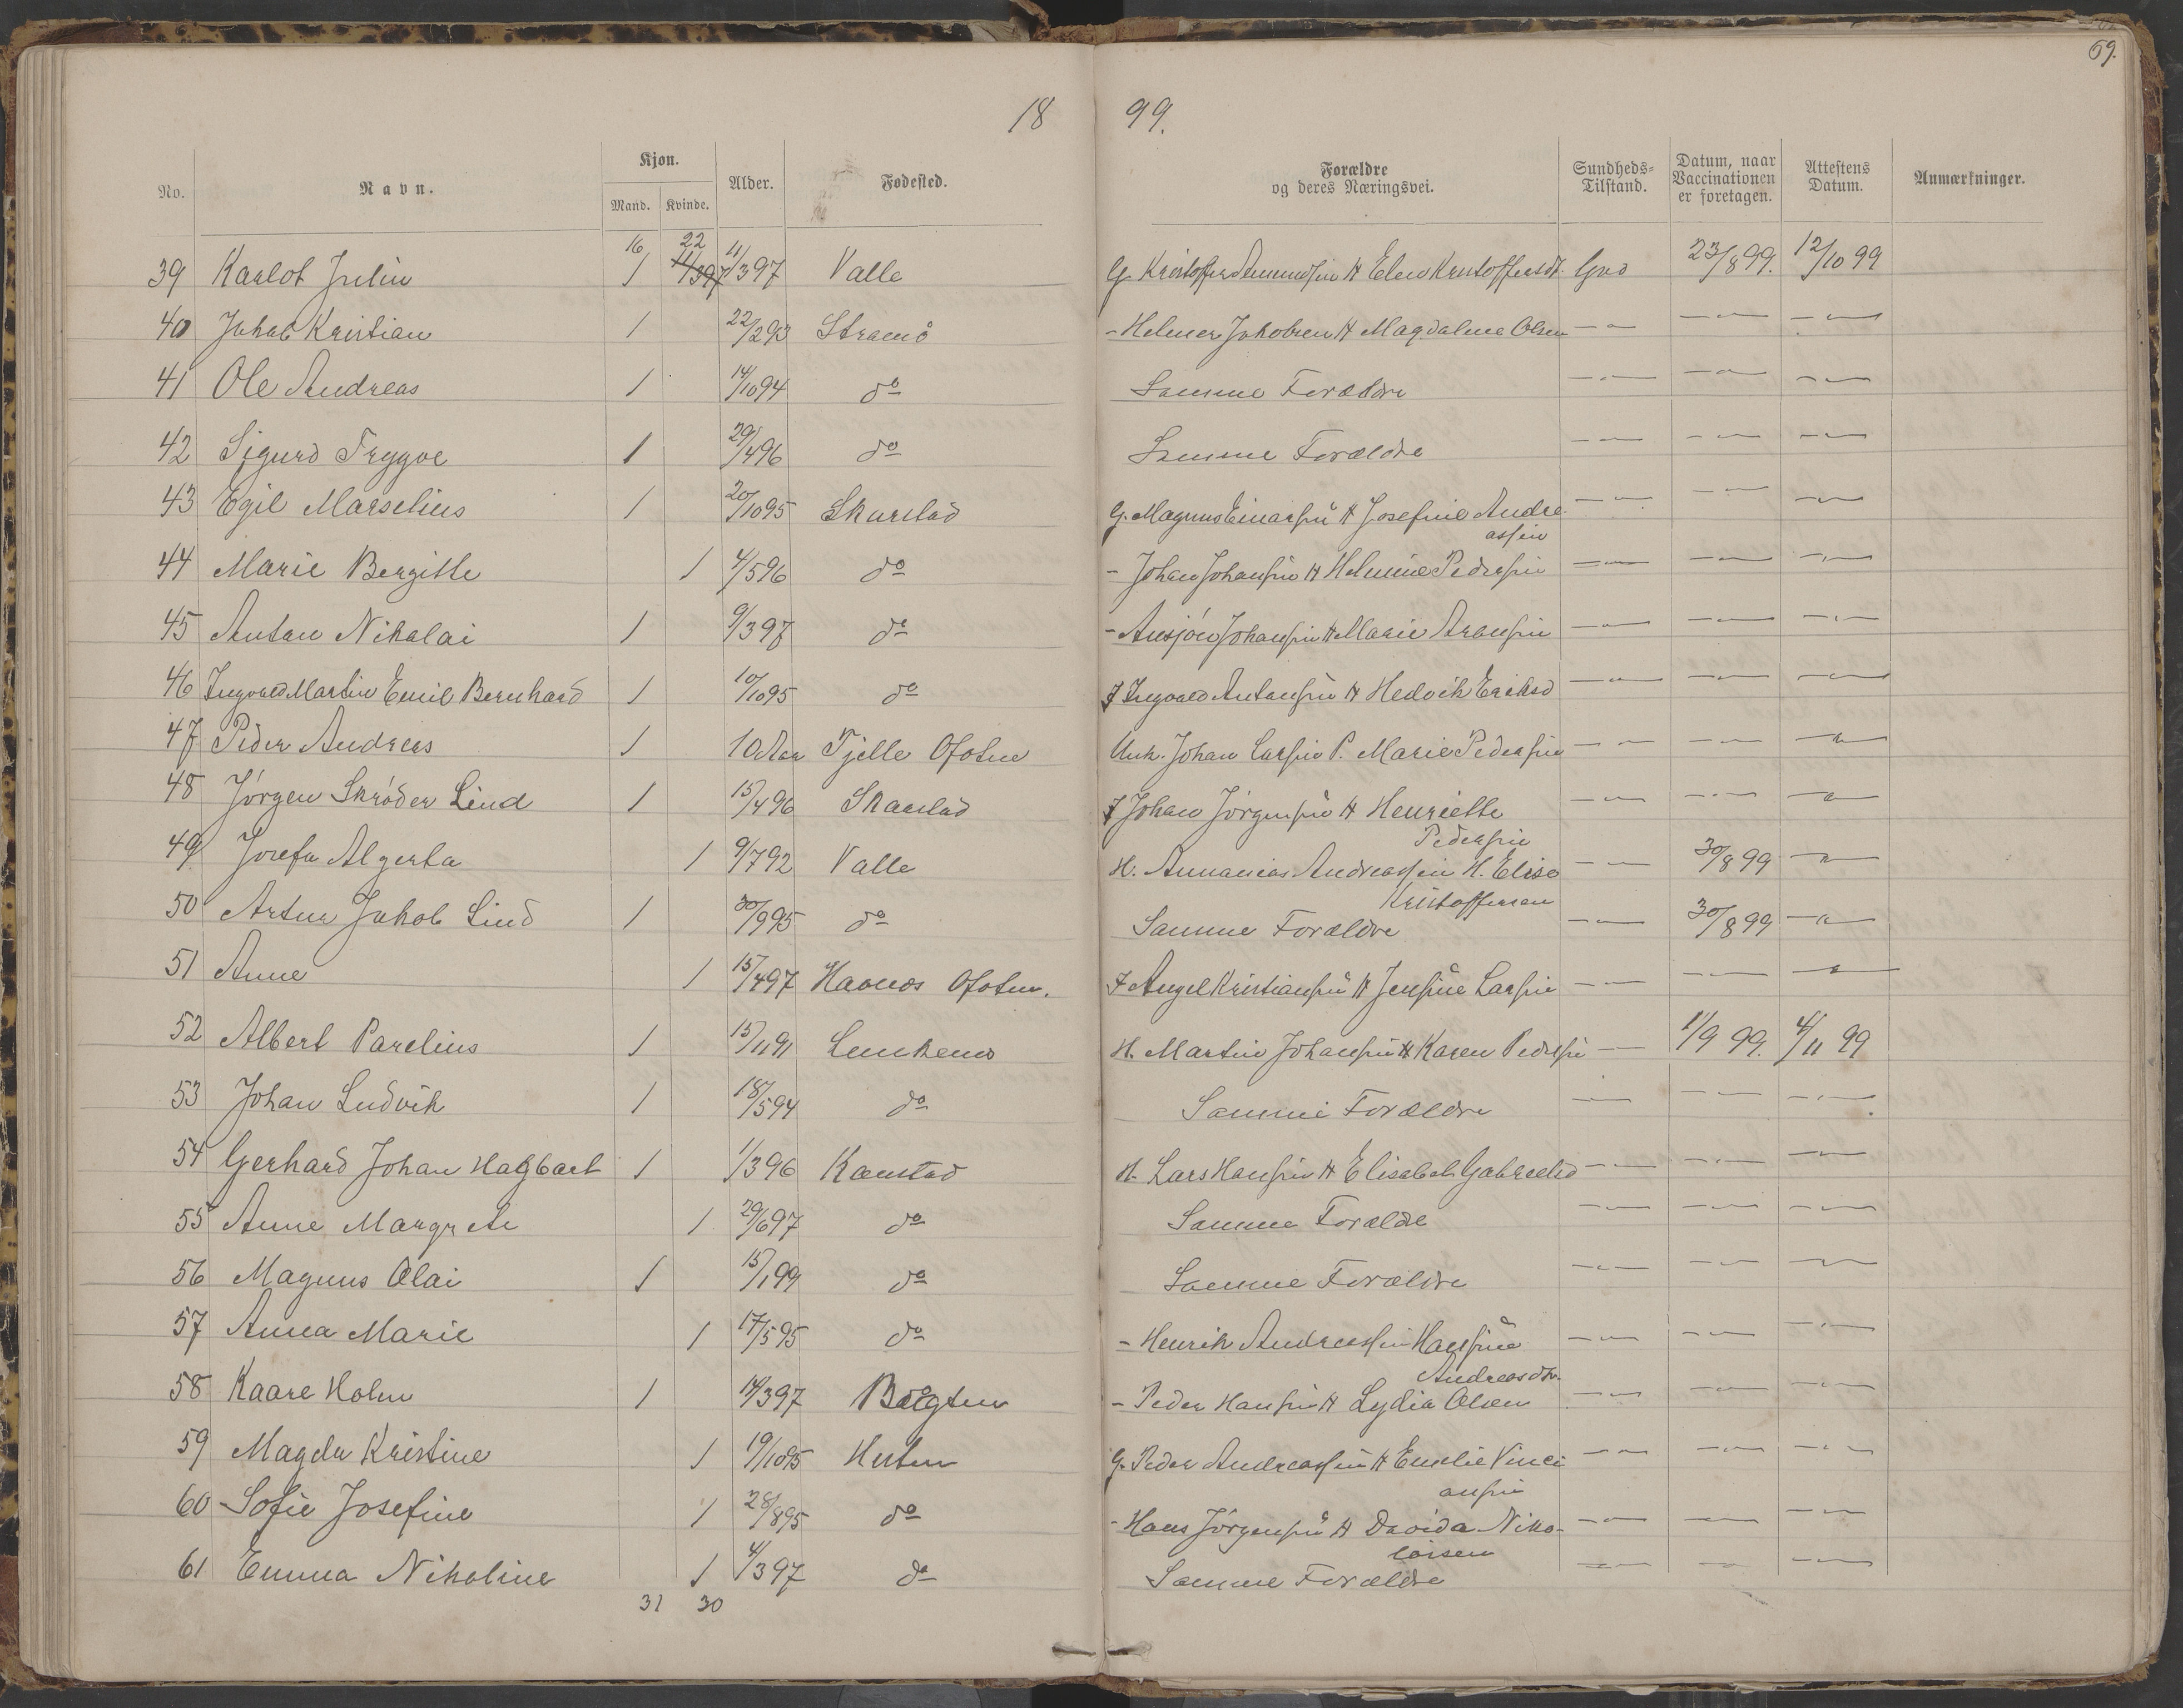 69.
18 99.
No. Navn. Kjøn. Mand. Kvinde. Alder. Fødested. Forældre og deres Næringsvei. Sundheds-Tilstand. Datum, naar Vaccinationen er foretagen. Attestens Datum. Anmærkninger.
16 22
39 Karlot Julin 1 11/397 11/397 Valle G. Kristoffer Amundsen H Elen Kristoffersdt. God 23/8 99. 12/10 99
40 Jakob Kristian 1 22/293 Stranö - Helmer Jakobsen H Magdalene Olsen — " — — " — — " —
41 Ole Andreas 1 14/1094 do Samme Forældre — " — — " — — " —
42 Sigurd Trygve 1 29/496 do Samme Forældre — " — — " — — " —
43 Egil Marselius 1 20/1095 Skarstad G. Magnus Einarsen H Josefine Andre- — " — — " — — " —
assen
44 Marie Bergitte 1 4/596 do - Johan Johansen H Helmine Pedersen — " — — " — — " —
45 Antan Nikolai 1 9/397 do - Ansjön Johansen H Marie Aronsen — " — — " — — " —
46 Ingvald Martin Emil Bernhard 1 10/1095 do I Ingvald Antansen H Hedvik Eriksd — " — — " — — " —
47 Peder Andreas 1 10 Aar Fjelle Ofoten Unk. Johan Larsen P. Marie Pedersen — " — — " — — " —
48 Jörgen Skröder Lind 1 15/496 Skarstad I Johan Jörgensen H Henriette — " — — " — — " —
Pedersen
49 Josefa Algerta 1 9/792 Valle H. Annanias Andreassen H. Elise — " — 30/8 99 — " —
Kristoffersen
50 Artur Jakob Lind 1 30/995 do Samme Forældre — " — 30/8 99 — " —
51 Anne 1 15/497 Havnes Ofoten. I Angel Kristiansen H Jensine Larsen — " — — " — — " —
52 Albert Parelius 1 15/1191 Lenkenes H. Martin Johansen H Karen Pedersen — 1/9 99. 4/11 99
53 Johan Ludvik 1 18/594 do Samme Forældre — " — — " — — " —
54 Gerhard Johan Hagbart 1 1/396 Kanstad H. Lars Hansen H Elisabet Gabrielsd — " — — " — — " —
55 Anne Margrete 1 29/697 do Samme Forælde — " — — " — — " —
56 Magnus Olai 1 15/199 do Samme Forældre — " — — " — — " —
57 Anna Marie 1 17/595 do - Henrik Andreassen Hansine — " — — " — — " —
Andreasdt.
58 Kaare Holm 1 14/397 Bögten - Peder Hansen H Lydia Olsen — " — — " — — " —
59 Magda Kristine 1 19/1095 Husten G. Peder Andreassen H Emelie Vinci — " — — " — — " —
ansen
60 Sofie Josefine 1 28/895 do - Hans Jörgensen H Davida Niko- — " — — " — — " —
laisen
61 Emma Nikoline 1 4/397 do Samme Forældre — " — — " — — " —
31 30